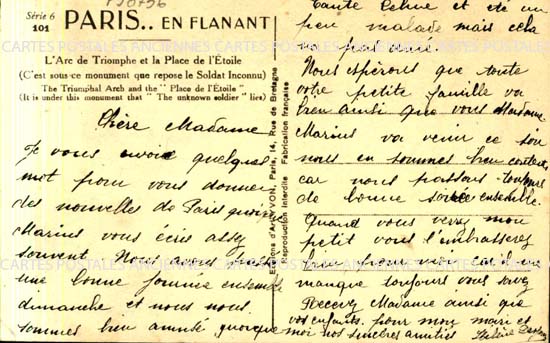 Série 6
101
PARIS.. EN FLANANT
L'Arc de Triomphe et la Place de l'Étoile
(C'est sous ce monument que repose le Soldat Inconnu)
The Triumphal Arch and the " Place de l'Étoile "
(It is under this monument that " The unknown soldier " lies)
Chère Madame
Je vous envoie quelques
mot pour vous donner
des nouvelles de Paris
Marius vous écris assez
souvent. Nous avons passé
une bonne journée ensemble
dimanche et nous nous
sommes bien amusé quoique
Editions d'Art YVON, Paris, 14, Rue de Bretagne
Reproduction Interdite Fabrication française
Tante Céline et été un
peu malade mais cela
na pas duré.
Nous espérons que toute
votre petite famille va
bien ainsi que vous Madame
Marius va venir ce soir
nous en sommes bien contents
car nous passons toujours
de bonne soirée ensemble.
Quand vous verez mon
petit vous l'embrasserez
bien pour moi car il me
manque toujours vous savez
Recevez Madame ainsi que
vos enfants. pour mon mari et
moi nos sincères amitiés
CARTES POSTALES ANCIENNES